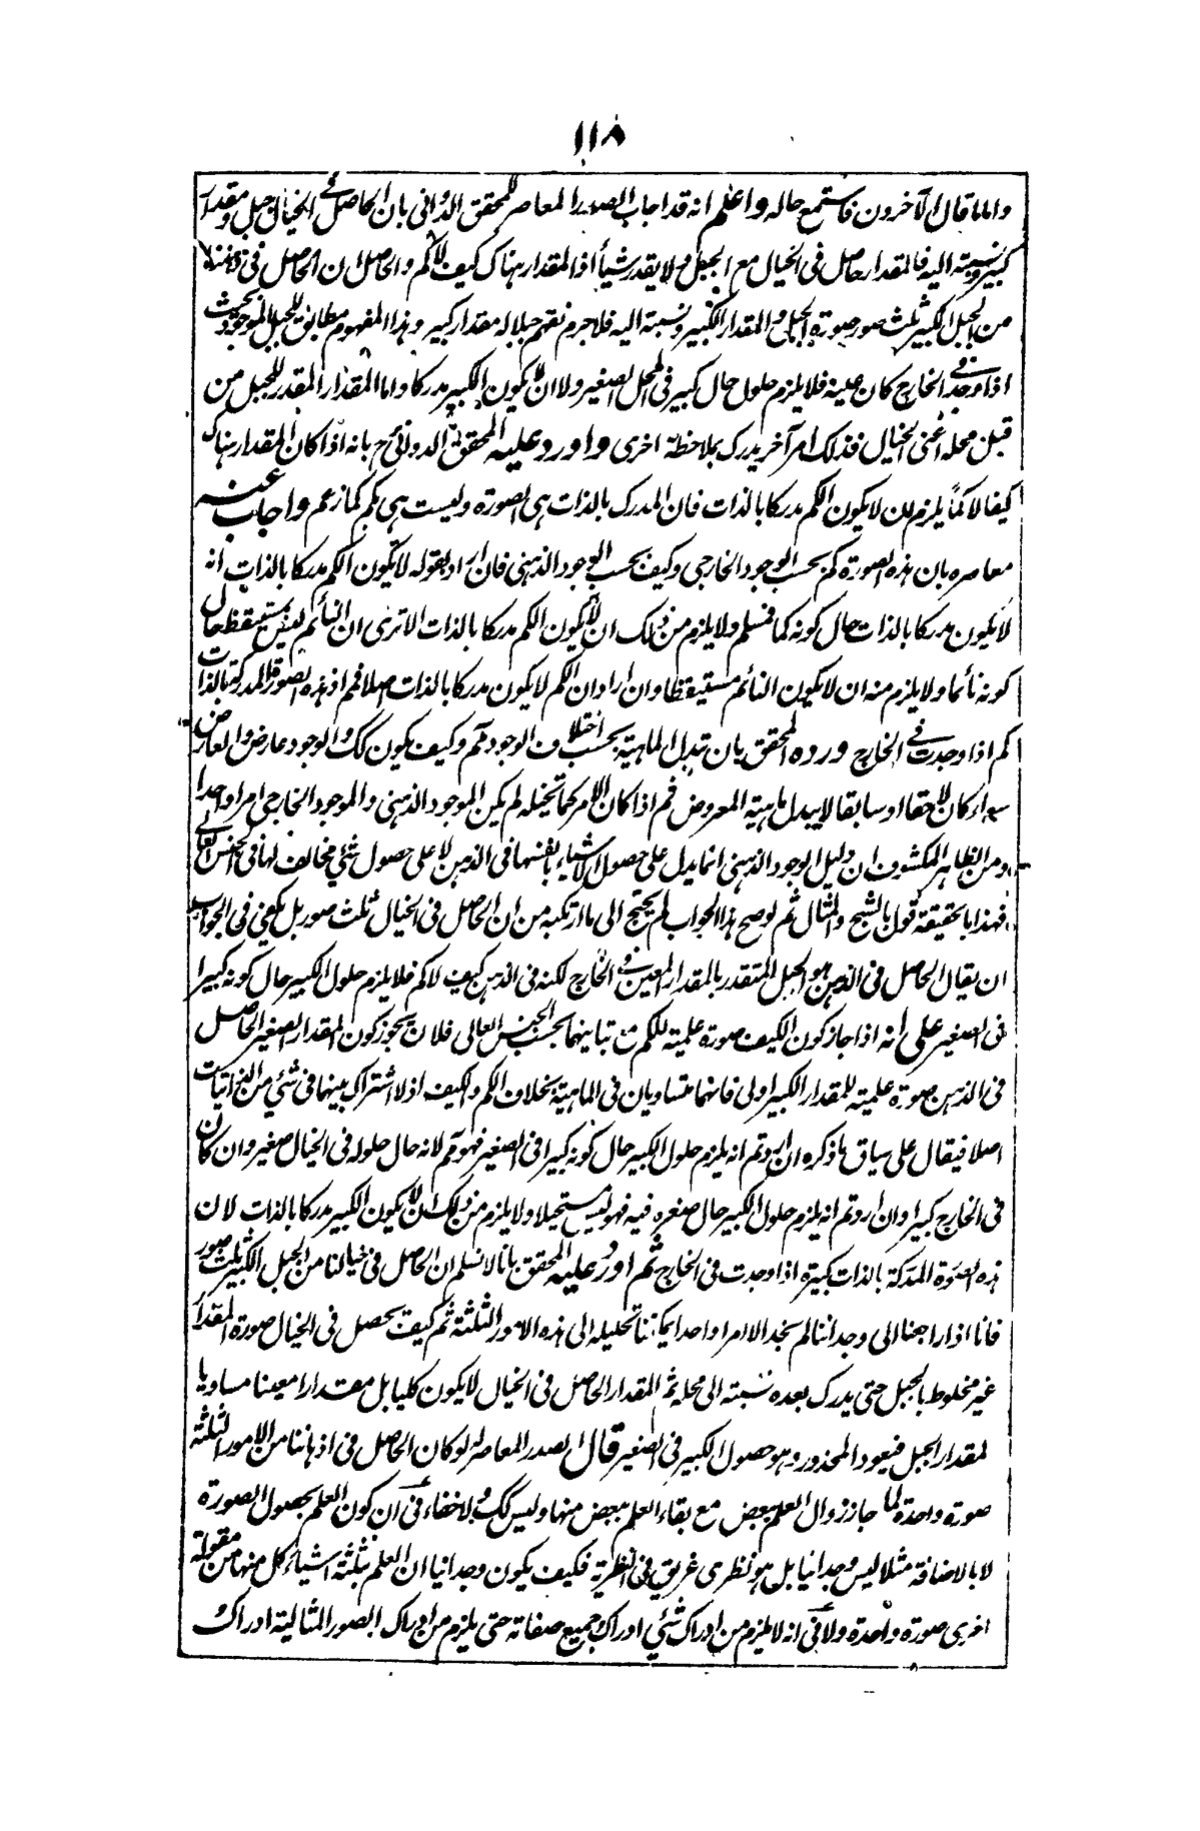 ١١٨
واما ما قال الآخرون فاستمع حاله واعلم انه قد اجاب الصدر المعاصر للمحقق الدوانى بان الحاصل فى الخيال جبل ومقدار
كبير ونسبته اليه فالمقدار حاصل فى الخيال مع الجبل ولا يقدر شيأ اذ المقدار هناك كيف لا كم والحاصل ان الحاصل فى ذهننا
من الجبل الكبير ثلث صور صورة الجبل والمقدار الكبير ونسبته اليه فلا جرم نفهم جبلا له مقدار كبير وهذا المفهوم مطابق للجبل الموجود بحيث
اذا وجد فى الخارج كان عينه فلا يلزم حلول حال كبير فى المحل الصغير ولا ان لا يكون الكبير مدركا واما المقدار المقدر للجبل من
قبل محله اعنى الخيال فذلك امر آخر يدرك بملاحظة اخرى واورد عليه المحقق الدوانى ح بانه اذا كان المقدار هناك
كيفا لا كما يلزم ان لا يكون الكم مدركا بالذات فان المدرك بالذات هى الصورة وليست هى بكم كما زعم واجاب عنه
معاصره بان هذه الصورة كم بحسب الوجود الخارجى وكيف بحسب الوجود الذهنى فان اراد بقوله لا يكون الكم مدركا بالذات انه
لا يكون مدركا بالذات حال كونه كما فمسلم ولا يلزم من ذلك ان لا يكون الكم مدركا بالذات الا ترى ان النائم ليس بمستيقظ حال
كونه نائما ولا يلزم منه ان لا يكون النائم مستيقظا وان اراد ان الكم لا يكون مدركا بالذات اصلا فمم اذ هذه الصورة المدركة بالذات
كم اذا وجدت فى الخارج ورده المحقق بان تبدل الماهية بحسب اختلاف الوجود مم وكيف يكون كك والوجود عارض والعارض
سواء كان لاحقا او سابقا لا يبدل ماهية المعروض ثم اذا كان الامر كما تخيله لم يكن الموجود الذهنى والموجود الخارجى امرا واحدا
ومن الظاهر المكشوف ان دليل الوجود الذهنى انما يدل على حصول الاشياء بانفسها فى الذهن لا على حصول شئ مخالف لها فى الجنس العالى
فهذا بالحقيقة قول بالشبح والمثال ثم لو صح هذا الجواب لم يحتج الى ما ارتكبه من ان الحاصل فى الخيال ثلث صور بل يكفى فى الجواب
ان يقال الحاصل فى الذهن هو الجبل المتقدر بالمقدار المعين فى الخارج لكنه فى الذهن كيف لا كم فلا يلزم حلول الكبير حال كونه كبيرا
فى الصغير على انه اذا جاز كون الكيف صورة علمية للكم مع تباينهما بحسب الجنس العالى فلان يجوز كون المقدار الصغير الحاصل
فى الذهن صورة علمية للمقدار الكبير اولى فانهما متساويان فى الماهية بخلاف الكم والكيف اذ لا اشتراك بينهما فى شئ من الذاتيات
اصلا فيقال على سياق ما ذكره ان اردتم انه يلزم حلول الكبير حال كونه كبيرا فى الصغير فهو مم لانه حال حلوله فى الخيال صغير وان كان
فى الخارج كبيرا وان اردتم انه يلزم حلول الكبير حال صغره فيه فهو ليس مستحيلا ولا يلزم من ذلك ان لا يكون الكبير مدركا بالذات لان
هذه الصورة المدركة بالذات كبيرة اذا وجدت فى الخارج ثم اورد عليه المحقق بانا لا نسلم ان الحاصل فى خيالنا من الجبل الكبير ثلث صور
فانا اذا راجعنا الى وجداننا لم نجد الا امرا واحدا يمكننا تحليله الى هذه الامور الثلثة ثم كيف يحصل فى الخيال صورة المقدار
غير مخلوط بالجبل حتى يدرك بعده نسبته الى محله ثم المقدار الحاصل فى الخيال لا يكون كليا بل مقدارا معينا مساويا
لمقدار الجبل فيعود المحذور وهو حصول الكبير فى الصغير قال الصدر المعاصر له لو كان الحاصل فى اذهاننا من الامور الثلثة
صورة واحدة لما جاز زوال العلم ببعض مع بقاء العلم ببعض منها وليس كك ولا خفاء فى ان كون العلم بحصول الصورة
لا بالاضافة مثلا ليس وجدانيا بل هو نظرى غريق فى النظرية فكيف يكون وجدانيا ان العلم بثلثة اشياء كل منها من مقولة
اخرى صورة واحدة ولا فى انه لا يلزم من ادراك شئ ادراك جميع صفاته حتى يلزم من ادراك الصور المثالية ادراك